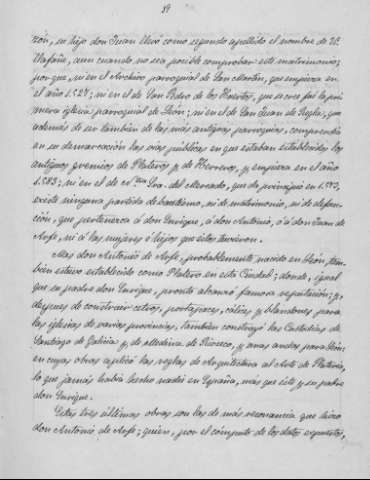 39
zón, su hijo don Juan llevó como segundo apellido el nombre de Vi-
llafañe, aun cuando no sea posible comprobar este matrimonio;
porque, ni en el Archivo parroquial de San Martín, que empieza en
el año 1.528; ni en el de San Pedro de los Huertos, que se cree fué la pri-
mera iglesia parroquial de León; ni en el de San Juan de Regla, que
además de ser también de las más antiguas parroquias, comprendía
en su demarcación las vías públicas en que estaban establecidos los
antiguos gremios de Plateros y de Herreros, y empieza en el año
1.583; ni en el de Ntra Sra. del Mercado, que da principio en 1.583,
existe ninguna partida de bautismo, ni de matrimonio, ni de defun-
ción, que pertenezca á don Enrique, á don Antonio, ó á don Juan de
Arfe, ni á las mujeres é hijos que éstos tuvieron.
Mas don Antonio de Arfe, probablemente nacido en León, tam-
bién estuvo establecido como Platero en esta Ciudad; donde, igual
que su padre don Enrique, pronto alcanzó famosa reputación; y,
después de construir cetros, portapaces, cálices y blandones para
las iglesias de varias provincias, también construyó las Custodias de
Santiago de Galicia y de Medina de Rioseco, y unas andas para León:
en cuyas obras aplicó las reglas de Arquitectura al Arte de Platería,
lo que jamás había hecho nadie en España, más que éste y su padre
don Enrique.
Estas tres últimas obras son las de más resonancia que hizo
don Antonio de Arfe; quien, por el conjunto de los datos expuestos,